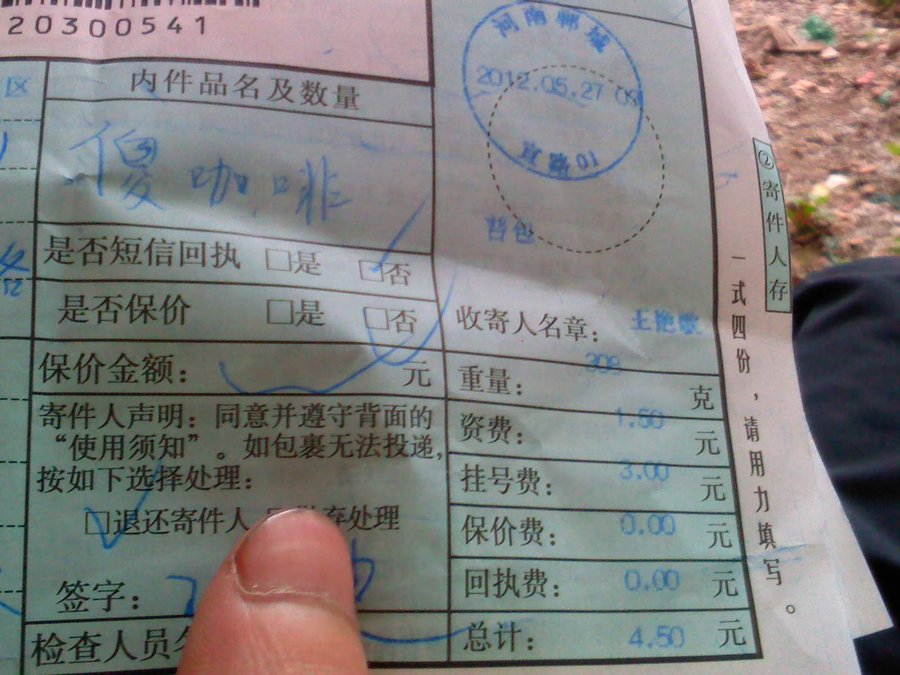 20300541
区
内件品名及数量
傻咖啡
是否短信回执 □是 □否
是否保价 □是 □否
保价金额： 元
寄件人声明：同意并遵守背面的
“使用须知”。如包裹无法投递，
按如下选择处理：
□退还寄件人 弃处理
签字：
检查人员
河南郸城
2012.05.27 09
路01
收寄人名章： 王艳歌
重量： 309 克
资费： 1.50 元
挂号费： 3.00 元
保价费： 0.00 元
回执费： 0.00 元
总计： 4.50 元
②寄件人存
一式四份，请用力填写。